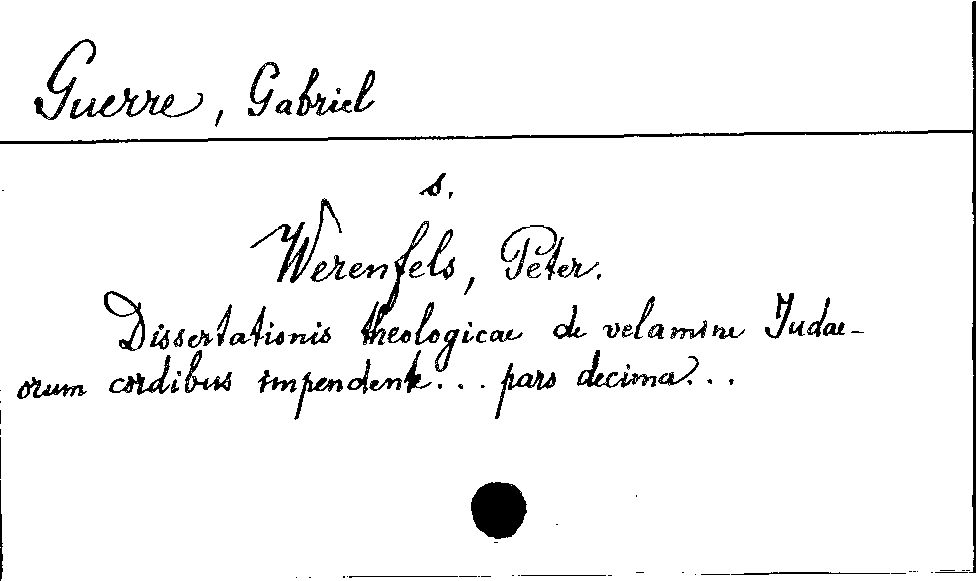 Guerre, Gabriel
s.
Werenfels, Peter.
Dissertationis theologicae de velamine Judae-
orum cordibus impendente... pars decima...